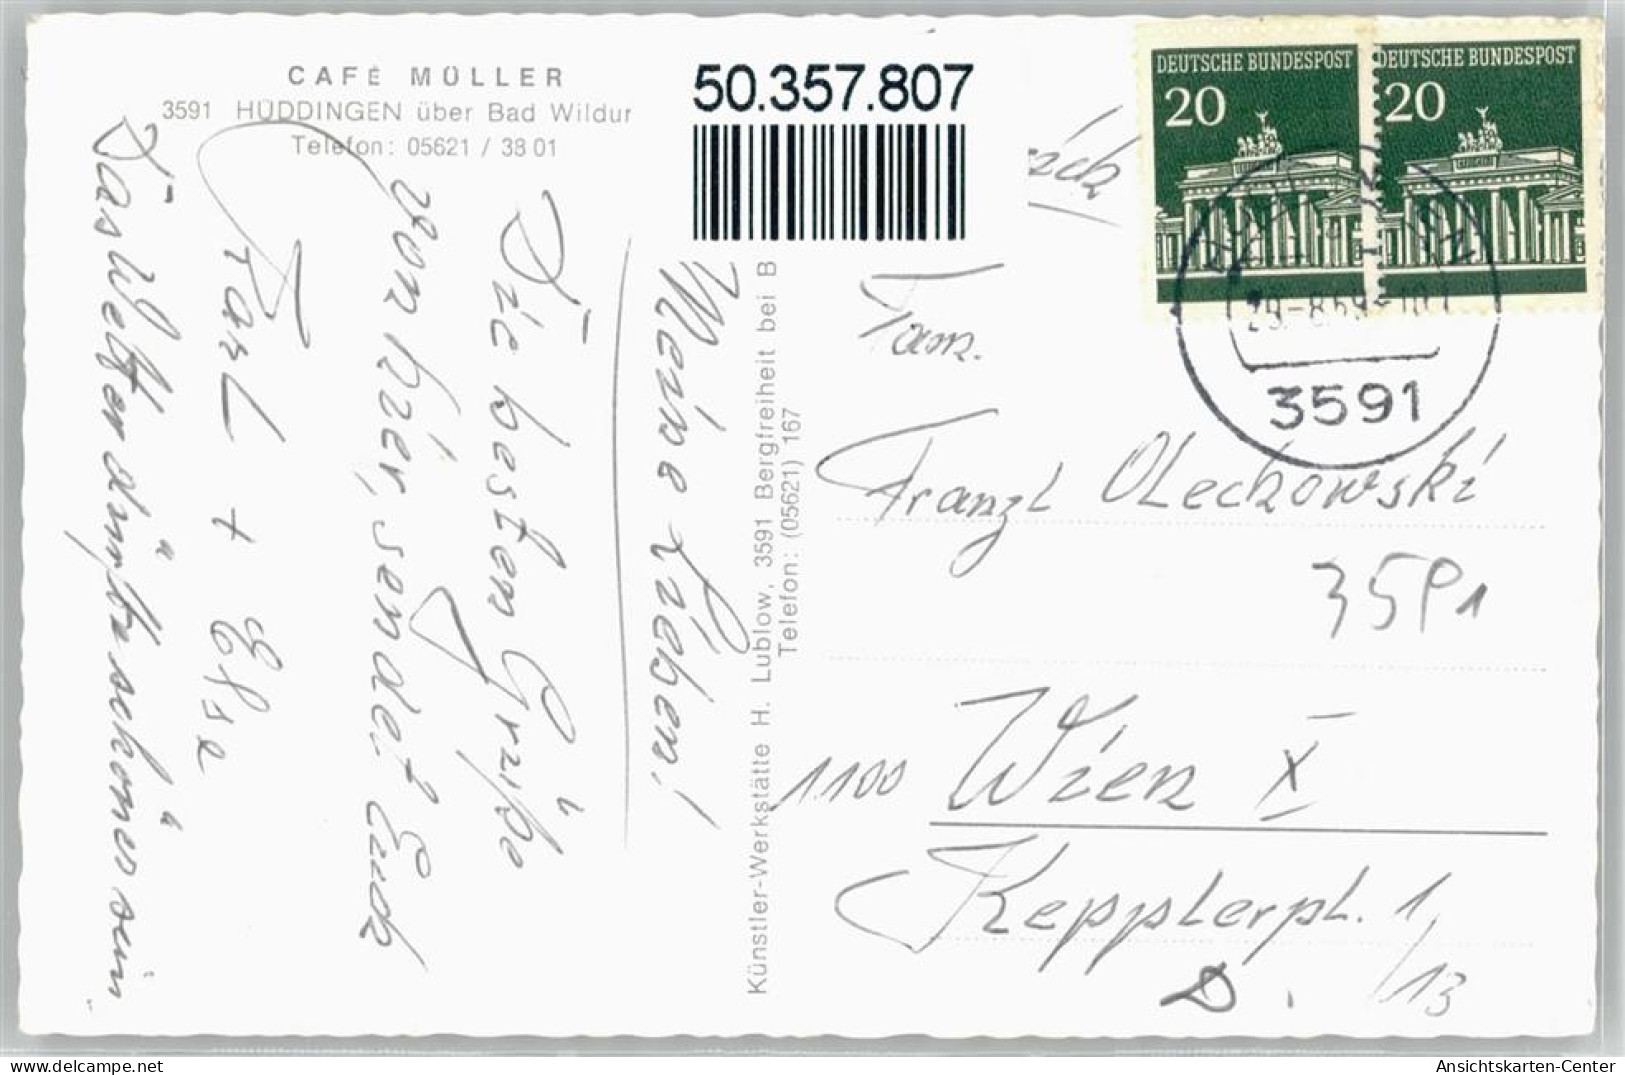 CAFÉ MÜLLER
3591 HÜDDINGEN über Bad Wildun
Telefon: 05621 / 38 01
50.357.807
DEUTSCHE BUNDESPOST
20
DEUTSCHE BUNDESPOST
20
3591
Meine Lieben!
Die besten Grüße
von hier, sendet Euch
Karl + Else
"Das Wetter dürfte schöner sein"
Künstler-Werkstätte H. Lublow, 3591 Bergfreiheit bei B
Telefon: (05621) 167
Fam.
Franzl Oleckowski
3591
1100 Wien X
Kepplerpl. 1/13
D.
Ansichtskarten-Center